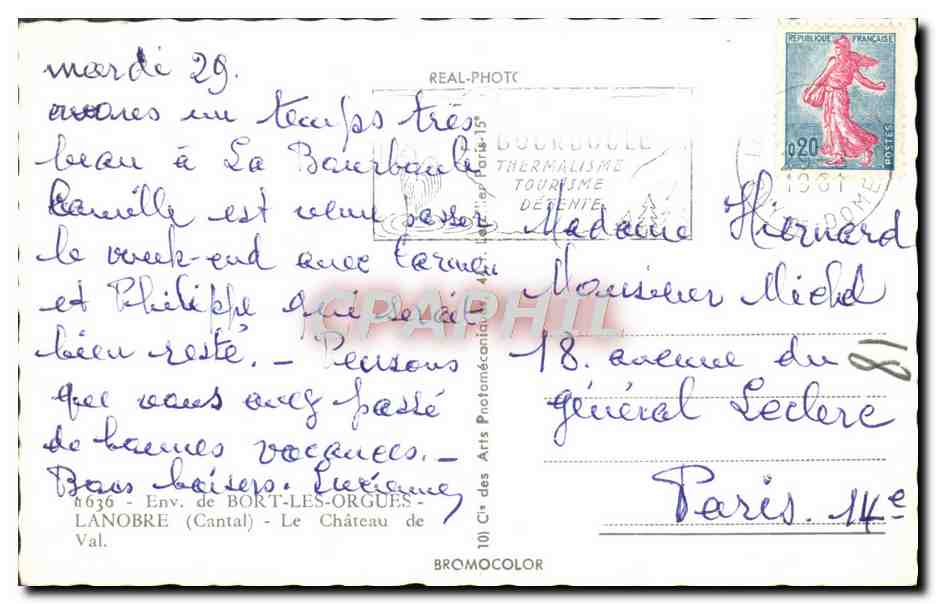 mardi 29.
avons un temps très
beau à La Bourboule
Camille est venu passer
le week-end avec Carmen
et Philippe qui serait
bien resté. _ Pensons
que vous avez passé
de bonnes vacances. _
Bons baisers. Lucienne
1636 - Env. de BORT-LES-ORGUES -
LANOBRE (Cantal) - Le Château de
Val.
REAL-PHOTO
BOURBOULE
THERMALISME
TOURISME
DÉTENTE
10) Cie des Arts Photomécaniques, 44, Paris-15e
BROMOCOLOR
CPAPHIL
RÉPUBLIQUE FRANÇAISE
0,20
POSTES
1961
DOME
Madame Hiernard
Monsieur Michel
18. avenue du
général Leclerc
Paris. 14e
81